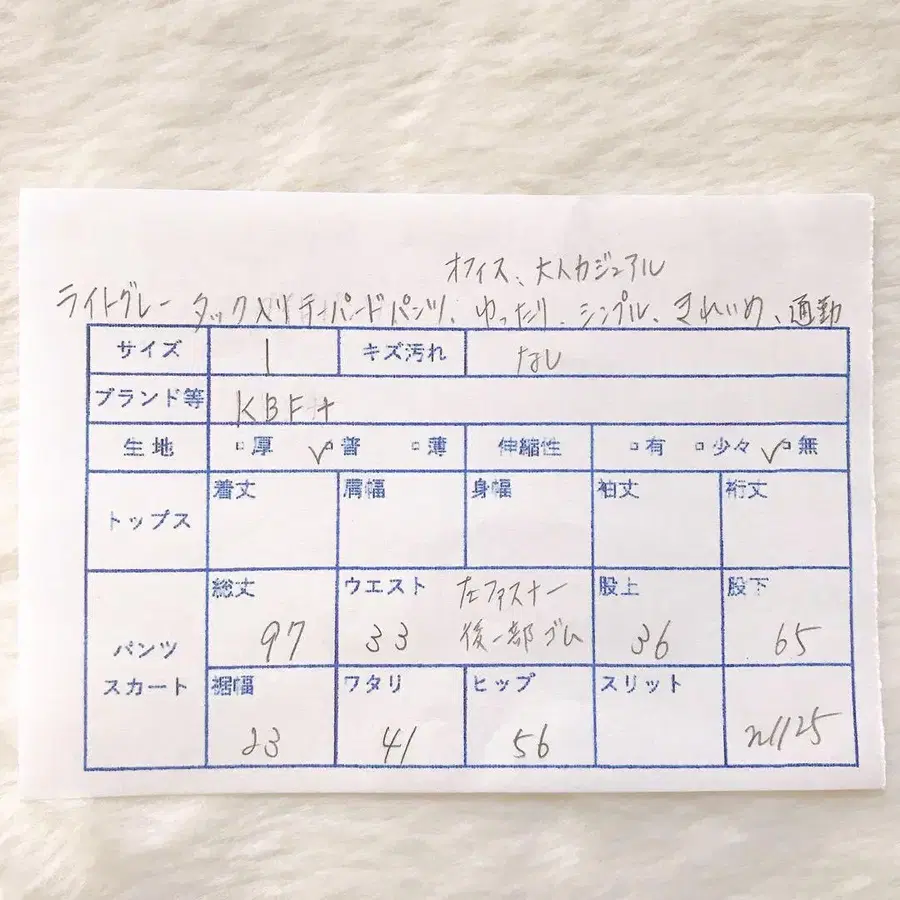 オフィス、大人カジュアル
ライトグレー タック入りテーパードパンツ、ゆったり、シンプル、きれいめ、通勤
サイズ 1 キズ汚れ なし
ブランド等 KBF+
生地 厚 ✓普 薄 伸縮性 有 少々 ✓無
トップス 着丈 肩幅 身幅 袖丈 裄丈
パンツ スカート
総丈 97 ウエスト 33 左ファスナー 後一部ゴム 股上 36 股下 65
裾幅 23 ワタリ 41 ヒップ 56 スリット n1125